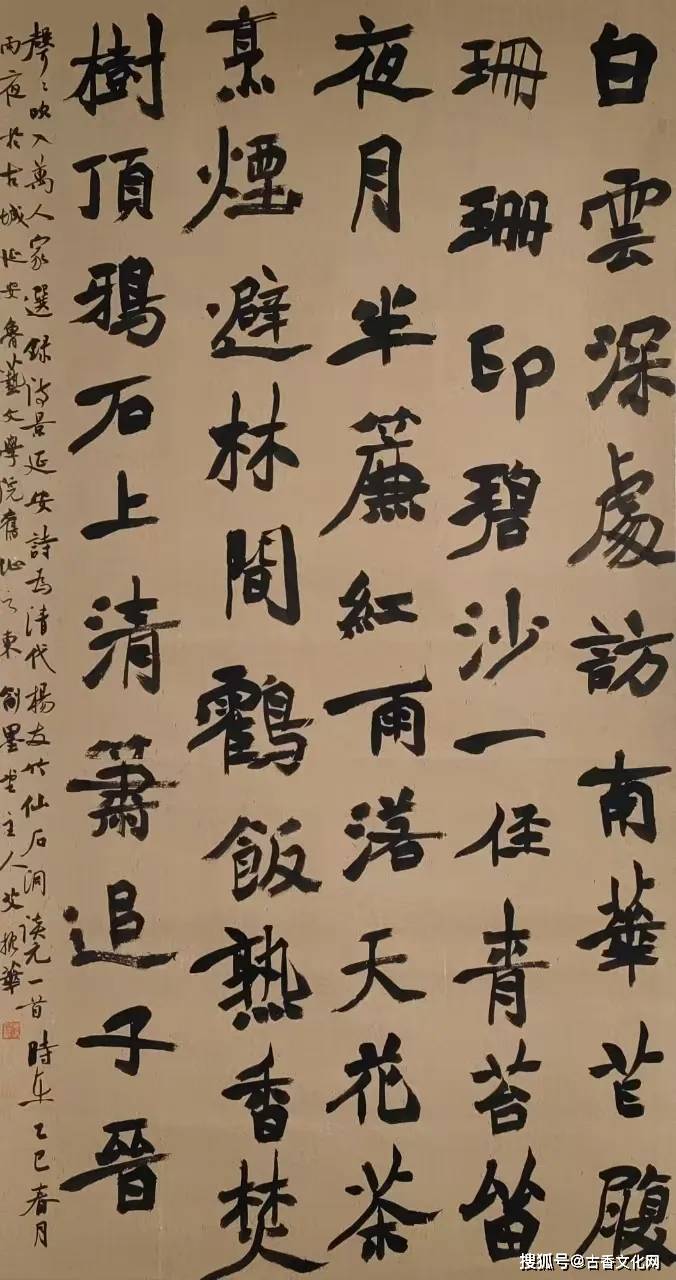 白雲深處訪南華芒履
珊珊印碧沙一径青苔笛
夜月半簾紅雨落天花茶
烹煙避林間鶴飯熟香焚
樹頂鴉石上清簫追子晉
聲〻吹入萬人家選録詩景延安詩為清代楊友竹仙石洞談元一首時在乙巳春月
雨夜於古城延安魯藝文學院舊址之東劍墨堂主人艾振華
搜狐号@古香文化网